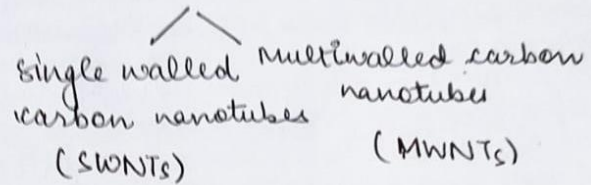 single walled
carbon nanotubes
(SWNTs)
Multiwalled carbon
nanotubes
(MWNTs)